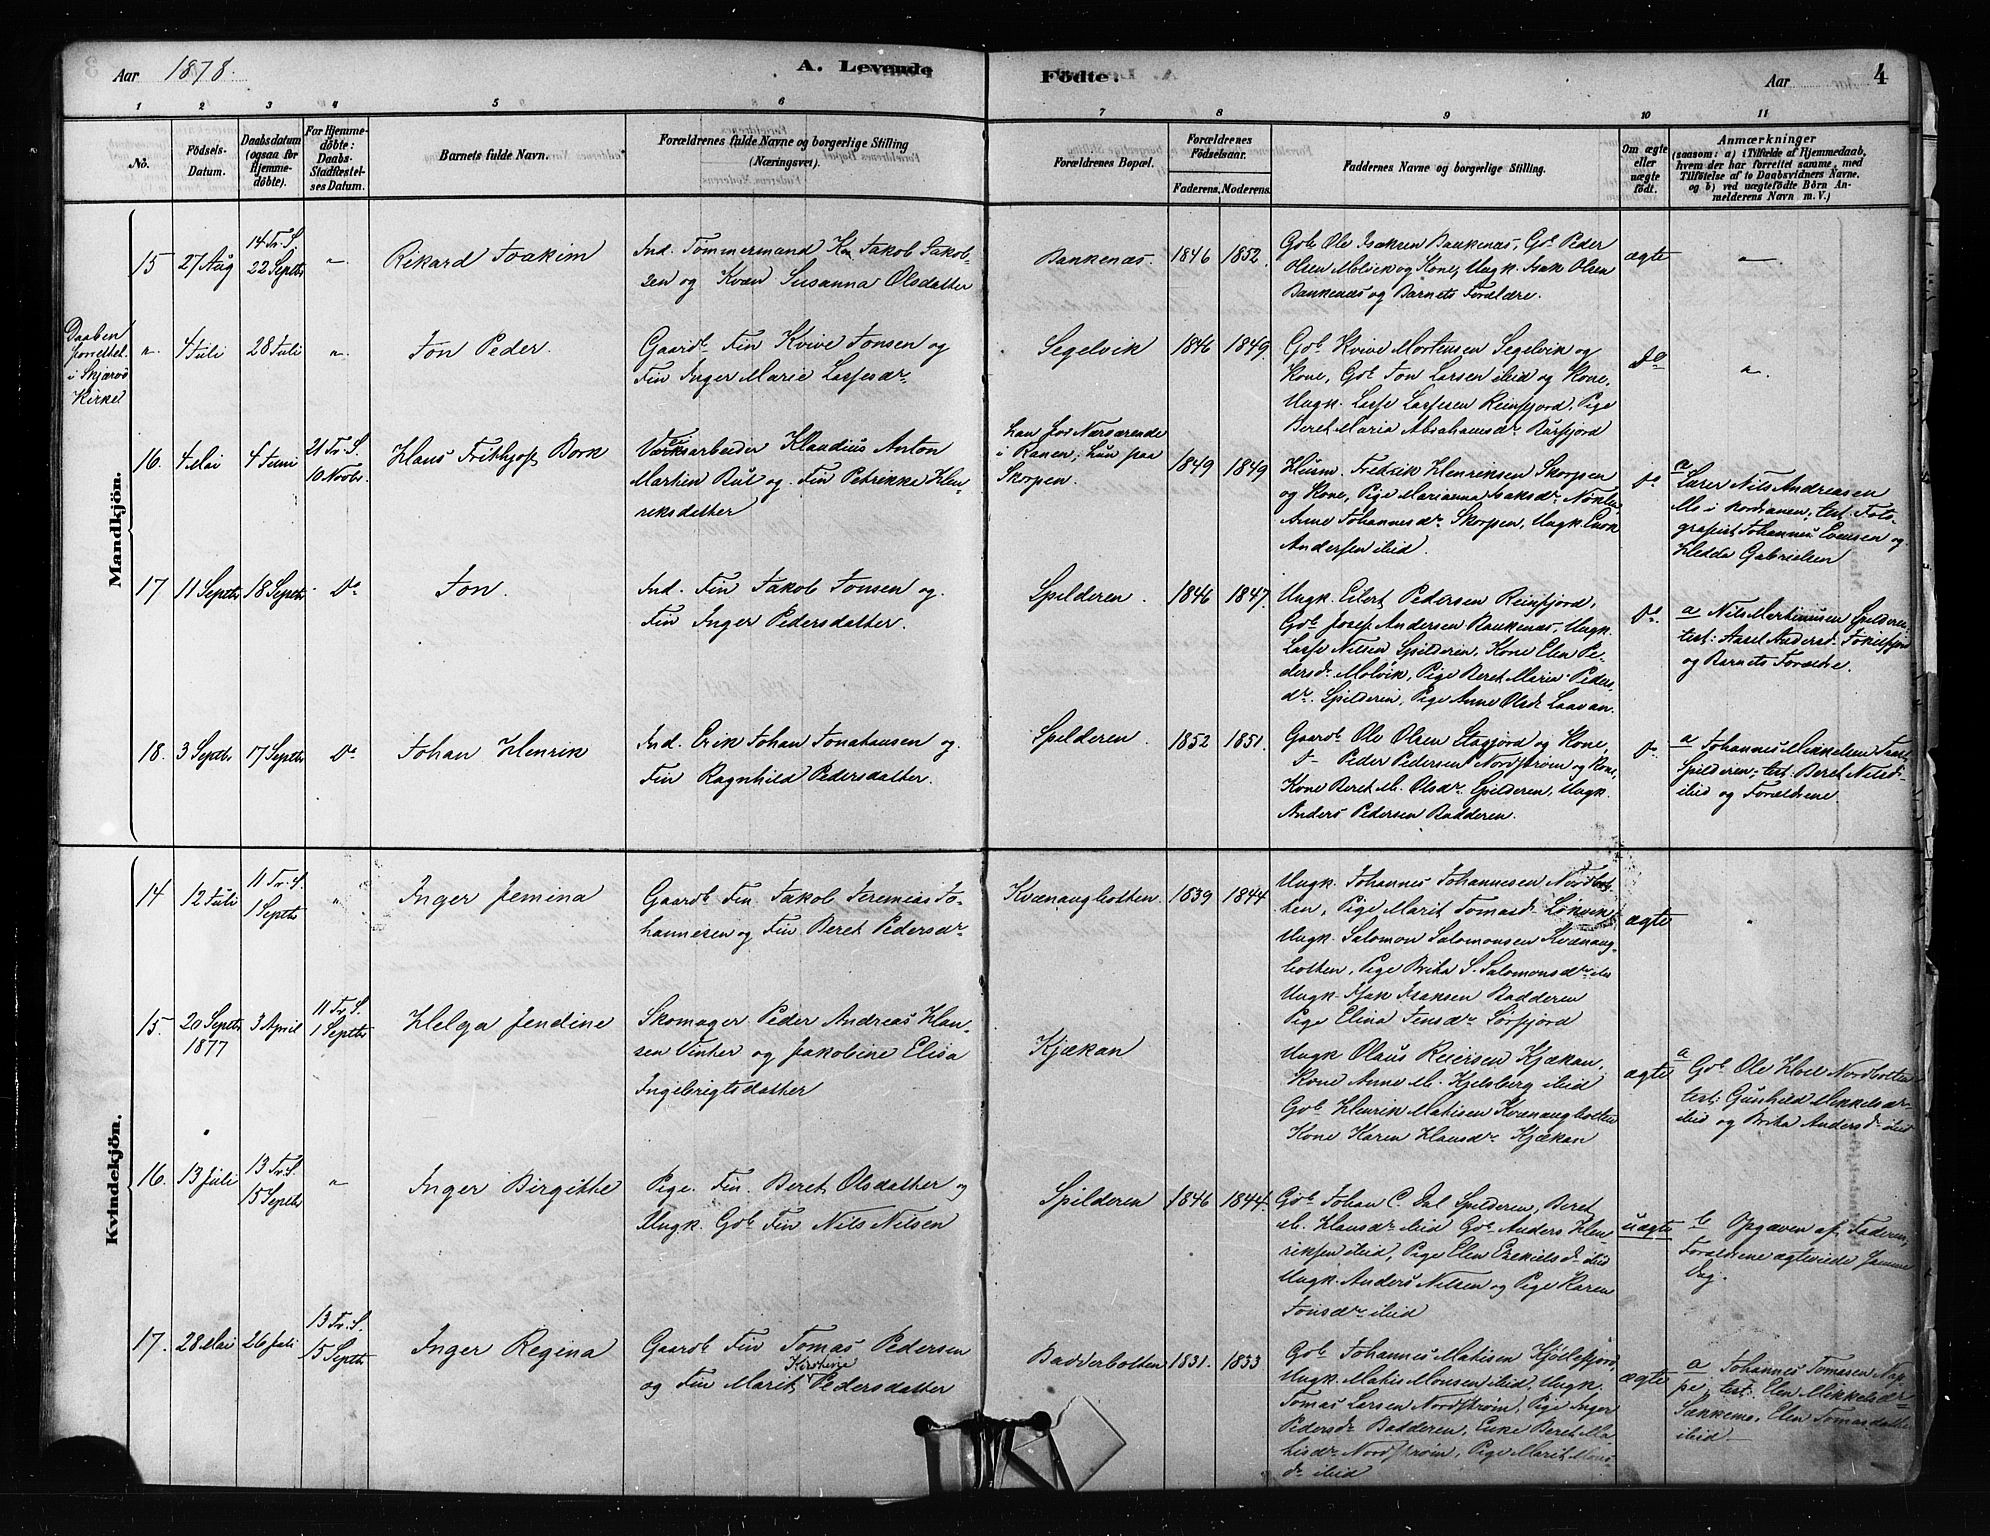 Aar 1878. A. Levende Födte. Aar 4
1 2 3 4 5 6 7 8 9 10 11
No.
Födsels-
Datum.
Daabsdatum
(ogsaa for
Hjemme-
döbte).
For Hjemme-
döbte:
Daabs-
Stadfæstel-
ses Datum.
Barnets fulde Navn.
Forældrenes fulde Navne og borgerlige Stilling
(Næringsvei).
Forældrenes Bopæl.
Forældrenes
Födselsaar.
Faderens. Moderens.
Faddernes Navne og borgerlige Stilling.
Om ægte
eller
uægte
födt.
Anmærkninger
(saasom: a) i Tilfælde af Hjemmedaab,
hvem der har forrettet samme, med
Tilföielse af to Daabsvidners Navne.
og b) ved uægtefödte Börn An-
melderens Navn m. V.)
Mandkjön.
15 27 Aug
14 Tr. S.
22 Septbr
"
Rikard Joakim
Ind. Tømmermand Kv. Jakob Jakob-
sen og Kvæn Susanna Olsdatter
Bankenæs. 1846 1852.
Gbr Ole Isaksen Bankenæs, Gbr Peder
Olsen Molvik og Kone, Ungk. Isak Olsen
Bankenæs og Barnets Forældre.
ægte
"
Daaben
forrettet
i Skjervø
Kirke
" 4 Juli 28 Juli "
Jon Peder.
Gaardb. Fin Kvive Jonsen og
Fin Inger Marie Larsesdr
Segelvik 1846 1849.
Gbr Kvive Mortensen Segelvik og
Kone, Gbr Jon Larsen ibid og Kone,
Ungk. Larse Larsesen Reinfjord, Pige
Beret Maria Abrahamsdr Burfjord
Do
"
16. 4 Mai 4 Juni
21 Tr. S.
10 Novbr.
Hans Frithjof Bork
Værksarbeider Klaudius Anton
Martin Bul og Fin Petrikka Hen-
riksdatter
han for Nærværende
i Ranen; hun paa
Skorpen.
1849 1849
Husm. Fredrik Henriksen Skorpen
og Kone, Pige Marianna Isaksdr Nøklen,
Anne Johannesdr Skorpen, Ungk. Enok
Andersen ibid.
Do
a Lærer Nils Andreasen
Mo i Nordranen; test. Foto-
grafist Johannes Evensen og
Hedda Gabrielsen
17 11 Septbr 18 Septbr Do
Jon.
Ind. Fin Jakob Jonsen og
Fin Inger Pedersdatter.
Spilderen. 1846 1847.
Ungk. Eilert Pedersen Reinfjord,
Gbr Josef Andersen Bankenæs, Ungk.
Larse Nilsen Spilderen, Kone Elen Pe-
dersdr Molvik, Pige Beret Maria Peders-
dr. Spilderen, Pige Anne Olsdr Laavan.
Do
a Nils Martinusen Spilderen,
test: Aasel Andersdr Jøkelfjord
og Barnets Forældre.
18. 3 Septbr 17 Septbr Do
Johan Henrik
Ind. Erik Johan Jonahansen og
Fin Ragnhild Pedersdatter.
Spilderen 1852 1851.
Gaardb. Ole Olsen Stajord og Kone,
F— Peder Pedersen Nordstrøm og Kone,
Kone Beret M. Olsdr. Spilderen, Ungk.
Anders Pedersen Badderen.
Do
a Johannes Mikkelsen
Spilderen; test. Beret Nilsdr
ibid og Forældrene.
Kvindekjön.
14 12 Juli
11 Tr. S.
1 Septbr
"
Inger Jemina
Gaardb. Fin Jakob Jeremias Jo-
hannesen og Fin Beret Pedersdr
Kvænangbotten 1839 1844
Ungk. Johannes Johannesen Nordbot-
ten, Pige Marit Tomasdr Løkvik
Ungk. Salomon Salomonsen Kvænang-
botten, Pige Brita S. Salomonsdr ibid
Ungk. Isak Isaksen Badderen
Pige Elina Jensdr Sørfjord
ægte
"
15. 20 Septbr
1877
3 April
11 Tr. S.
1 Septbr
Helga Jendine
Skomager Peder Andreas Han-
sen Vinter og Jakobine Elisa
Ingebrigtsdatter
Kjækan
Ungk Olaus Reiersen Kjækan,
Kone Anne M. Kjelsberg ibid
Gbr Henrik Matisen Kvænangbotten
Kone Karen Hansdr Kjækan
ægte
a Gbr Ole Hoel Nordbotten
test: Gunhild Mikkelsdr
ibid og Brita Andersdr ibid
16. 13 Juli
13 Tr. S.
15 Septbr
"
Inger Birgitte
Pige. Fin. Beret Olsdatter og
Ungk. Gbr Fin Nils Nilsen
Spilderen 1846 1844.
Gbr Johan C. Dal Spilderen, Beret
M. Hansdr ibid Gbr Anders Hen-
riksen ibid, Pige Elen Ezekielsdr ibid
Ungk. Anders Nilsen og Pige Karen
Jonsdr ibid
uægte
b Opgaven af Faderen,
Forældrene ægteviede samme
Dag.
17. 28 Mai 26 Juli
13 Tr. S.
15 Septbr
Inger Regina
Gaardb. Fin Tomas Pedersen
og Fin Marit Kirstine Pedersdatter
Badderbotten 1831. 1833
Gbr Johannes Matisen Kjøllefjord,
Ungk. Matis Monsen ibid, Ungk.
Tomas Larsen Nordstrøm, Pige Inger
Pedersdr Badderen, Enke Beret Ma-
tisdr Nordstrøm, Pige Marit Mons-
dr ibid
ægte
a Johannes Tomasen Nap-
pe, test: Elen Mikkelsdr
Sækkemo, Elen Tomasdatter
ibid